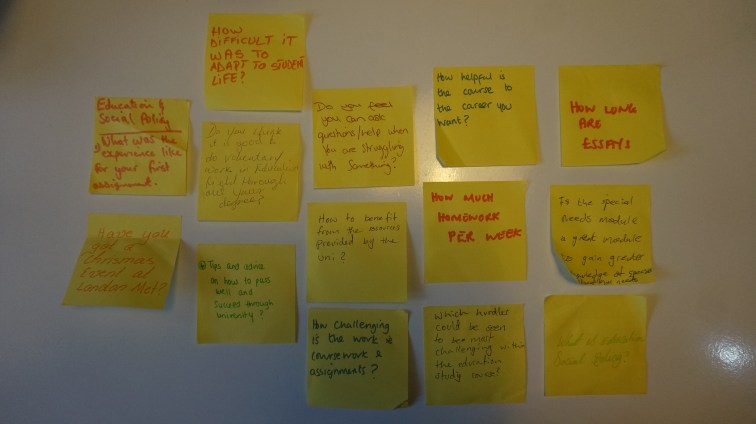 HOW
DIFFICULT IT
WAS TO
ADAPT TO STUDENT
LIFE?
Education &
Social Policy
What was the
experience like
for your first
assignment.
Do you think
it is good to
do voluntary
work in education
right through
out your
degree?
Do you feel
you can ask
questions/help when
you are struggling
with something?
How helpful is
the course to
the career you
want?
HOW LONG
ARE
ESSAYS
Have you
got a
Christmas
Event at
London Met?
Tips and advice
on how to pass
well and
succeed through
university?
How to benefit
from the
provided by the
uni?
HOW MUCH
HOMEWORK
PER WEEK
Is the special
needs module
a great module
to gain greater
knowledge of special
needs
How challenging
is the work ie
coursework &
assignments?
Which hurdles
could be seen
to be most
challenging within
the education
study course?
What is education
Social Policy?